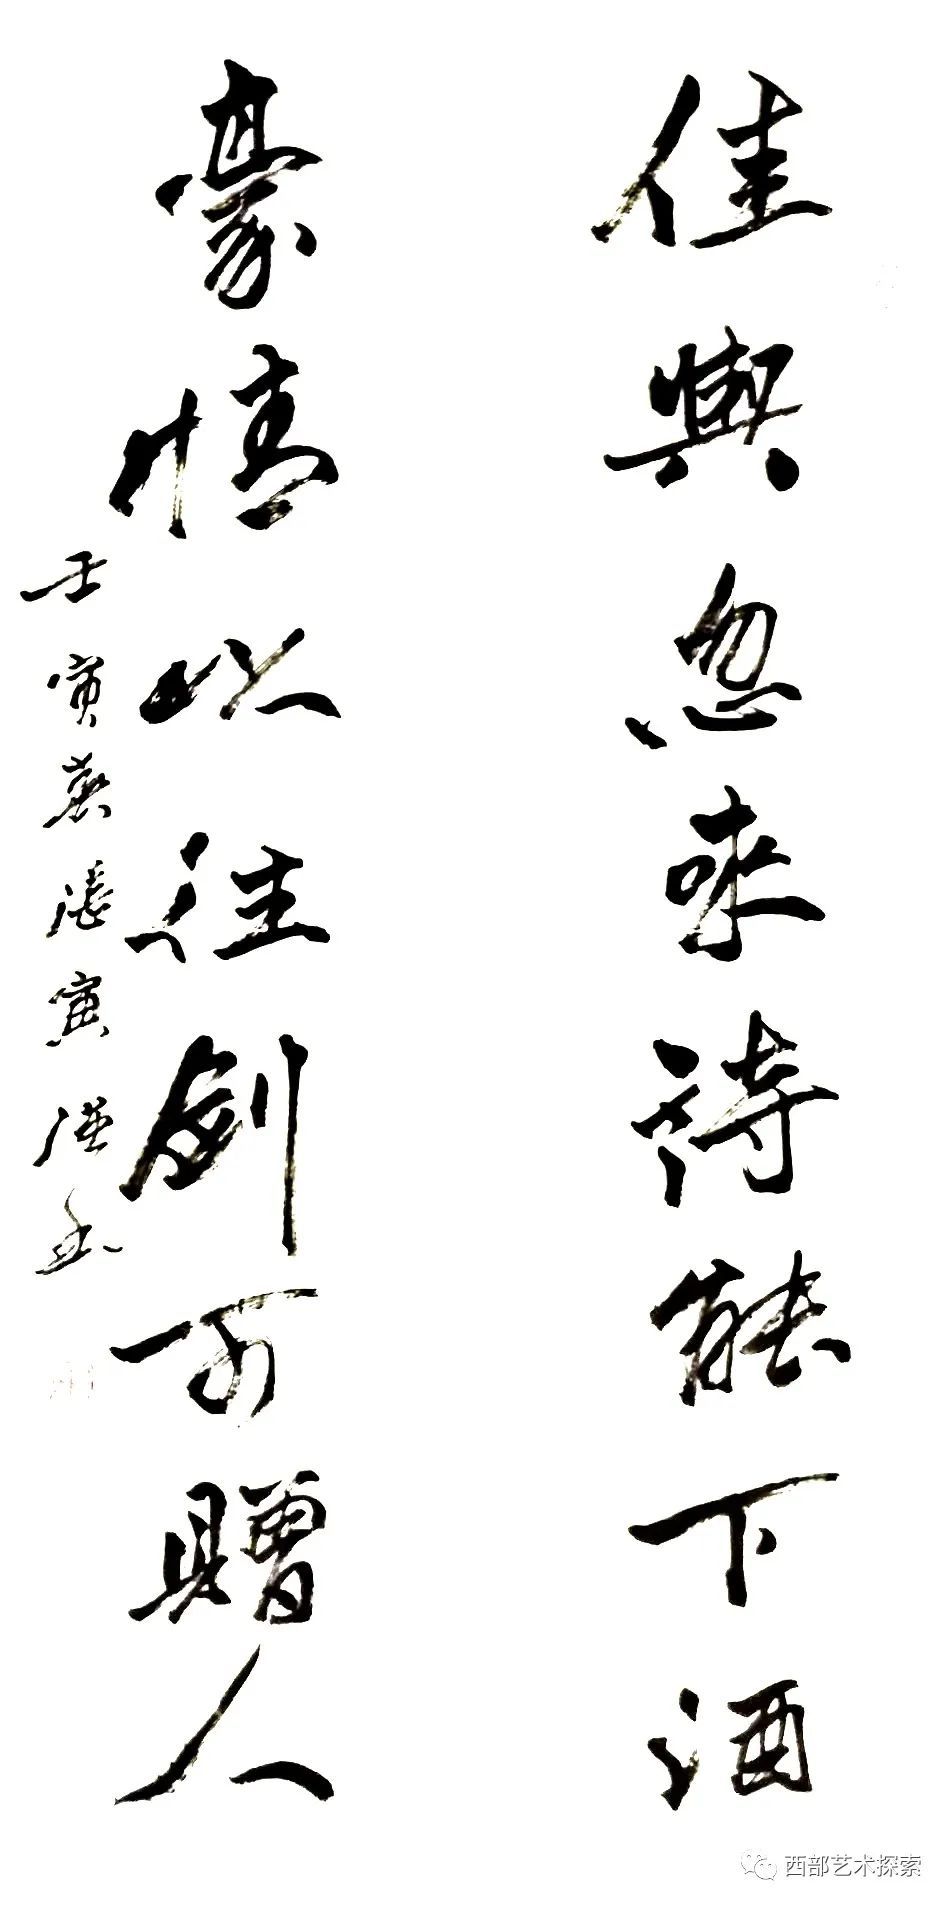 佳興忽來詩能下酒
豪情以往劍可贈人
壬寅春
西部艺术探索